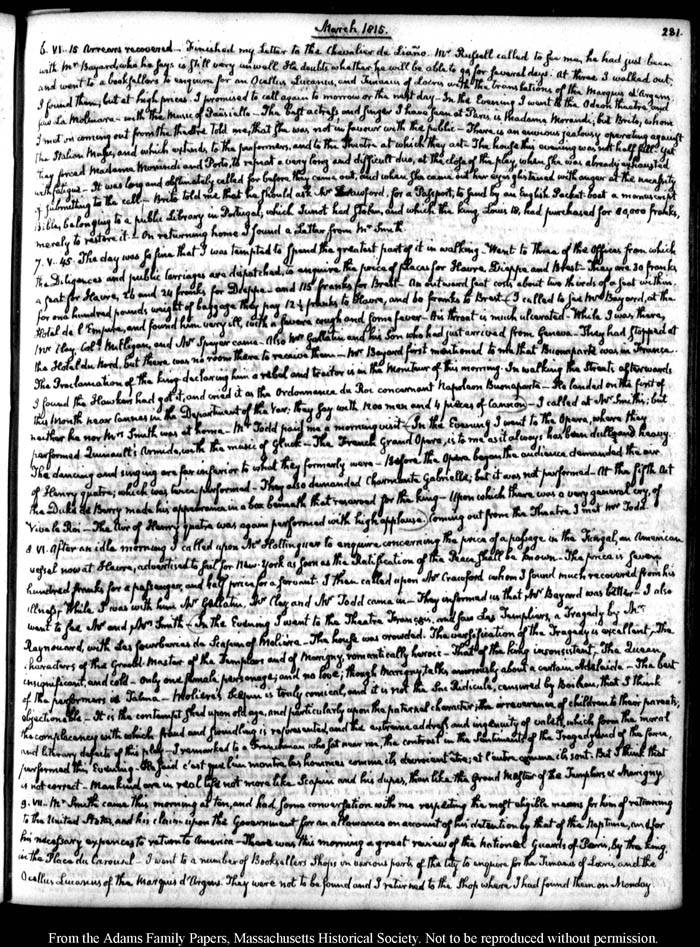 March 1815.
281.
6. VI. 15 Arrears recovered — Finished my Letter to the Chevalier de Liaño. Mr Russell called to see me, he had just been
with Mr Bayard, who he says is still very unwell. He doubts whether he will be able to go for several days. At three I walked out
and went to a booksellers to enquire for an Ocellus Lucanus, and Timaeus of Locris with the translations of the Marquis d'Argens.
I found them, but at high prices. I promised to call again to morrow or the next day — In the Evening I went to the Odeon theatre, and
saw La Molinara — with the Music of Paisiello — The best actress and singer I have seen at Paris is Madame Morandi; but Brito, whom
I met on coming out from the theatre told me, that she was not in favour with the public — There is an envious jealousy operating against
the Italian Music, and which extends to the performers, and to the Theatre at which they act. The house this evening was not half full. Yet
they forced Madame Morandi and Porto, to repeat a very long and difficult duo, at the close of the play, when she was already exhausted
with fatigue — It was long and obstinately called for before they came out, and when she came out her eyes glistened with anger at the necessity
of submitting to the call — Brito told me that he should ask Mr Crawford, for a Passport, to send by an English Packet-boat a manuscript
Bible, belonging to a public Library in Portugal, which Junot had stolen, and which the king, Louis 18, had purchased for 80,000 franks,
merely to restore it — On returning home I found a Letter from Mr Smith
7. V. 45. The day was so fine that I was tempted to spend the greatest part of it in walking — Went to Three of the Offices from which
the Diligences and public carriages are dispatched, to enquire the price of places for Havre, Dieppe and Brest — They are 30 franks
a seat for Havre, 26 and 24 franks for Dieppe — and 115 franks for Brest — An outward seat costs about two thirds of a seat within —
for one hundred pounds weight of baggage they pay 12½ franks to Havre, and 60 franks to Brest. I called to see Mr Bayard, at the
Hotel de l'Empire, and found him very ill, with a severe cough and some fever — His throat is much ulcerated — While I was there,
Mr Clay, Coll Milligan, and Mr Speyer came — Also Mr Gallatin and his Son who had just arrived from Geneva — They had stopped at
the Hotel du Nord, but there was no room there to receive them — Mr Bayard first mentioned to me that Buonaparte was in France.
The Proclamation of the king declaring him a rebel and traitor is in the Moniteur of this morning. In walking the Streets afterwards
I found the Hawkers had got it, and cried it as the Ordonnance du Roi concernant Napoleon Buonaparte — He landed on the first of
this Month near Cannes in the Department of the Var; they say with 1200 men and 4 pieces of Cannon — I called at Mr Smith's; but
neither he nor Mrs Smith was at home — Mr Todd paid me a morning visit — In the Evening I went to the Opera, where they
performed Quinault's Armide, with the music of Gluck — The French Grand Opera, is to me as it always has been dull and heavy.
The dancing and singing are far inferior to what they formerly were — Before the Opera began the audience demanded the air
of Henry quatre; which was twice performed — They also demanded Charmante Gabrielle; but it was not performed — At the fifth Act
the Duke de Berry made his appearance in a box beneath that reserved for the king — Upon which there was a very general cry, of
Vive le Roi — The air of Henry quatre was again performed with high applause. Coming out from the Theatre I met Mr Todd.
8 VI. After an idle morning I called upon Mr Hottinguer to enquire concerning the price of a passage in the Fingal, an American
vessel now at Havre, advertised to sail for New-York as soon as the Ratification of the Peace shall be known — The price is seven
hundred franks for a passenger, and half price for a servant. I then called upon Mr Crawford whom I found much recovered from his
illness. While I was with him Mr Gallatin, Mr Clay and Mr Todd came in — They informed us that Mr Bayard was better — I also
went to see Mr and Mrs Smith — In the Evening I went to the Theatre Français, and saw Les Templiers, a Tragedy by Mr
Raynouard, with Les fourberies de Scapin of Moliere — The house was crowded. The versification of the Tragedy is excellent, The
characters of the Grand-Master of the Templars and of Marigny, romantically heroic — That of the king inconsistent, The Queen
insignificant, and cold — Only one female personage; and no love; though Marigny talks amorously about a certain Adelaide — The best
of the performers is Talma — Moliere's Scapin is truly comical, and it is not the Sac Ridicule, censured by Boileau, that I think
objectionable — It is the contempt shed upon old age, and particularly upon the paternal character; the irreverence of children to their parents;
the complacency with which fraud and swindling is represented, and the extreme address and ingenuity of valets, which form the moral
and literary defects of this play — I remarked to a Frenchman who sat near me, the contrast in the Sentiments of the Tragedy and of the farce,
performed this Evening — He said c'est que l'un montre les hommes comme ils devroient être; et l'autre comme ils sont. But I think that
is not correct — Mankind are in real life not more like Scapin and his dupes, than like the Grand Master of the Templars & Marigny
9. VII. Mr Smith came this morning at ten, and had some conversation with me respecting the most eligible means for him of returning
to the United States, and his claim upon the Government for an allowance on account of his detention by that of the Neptune, and for
his necessary expences to return to America — There was this morning a great review of the National Guards of Paris, by the king,
in the Place du Carousel — I went to a number of Booksellers Shops in various parts of the City to enquire for the Timaeus of Locris and the
Ocellus Lucanus of the Marquis d'Argens. They were not to be found and I returned to the Shop where I had found them on Monday
From the Adams Family Papers, Massachusetts Historical Society. Not to be reproduced without permission.